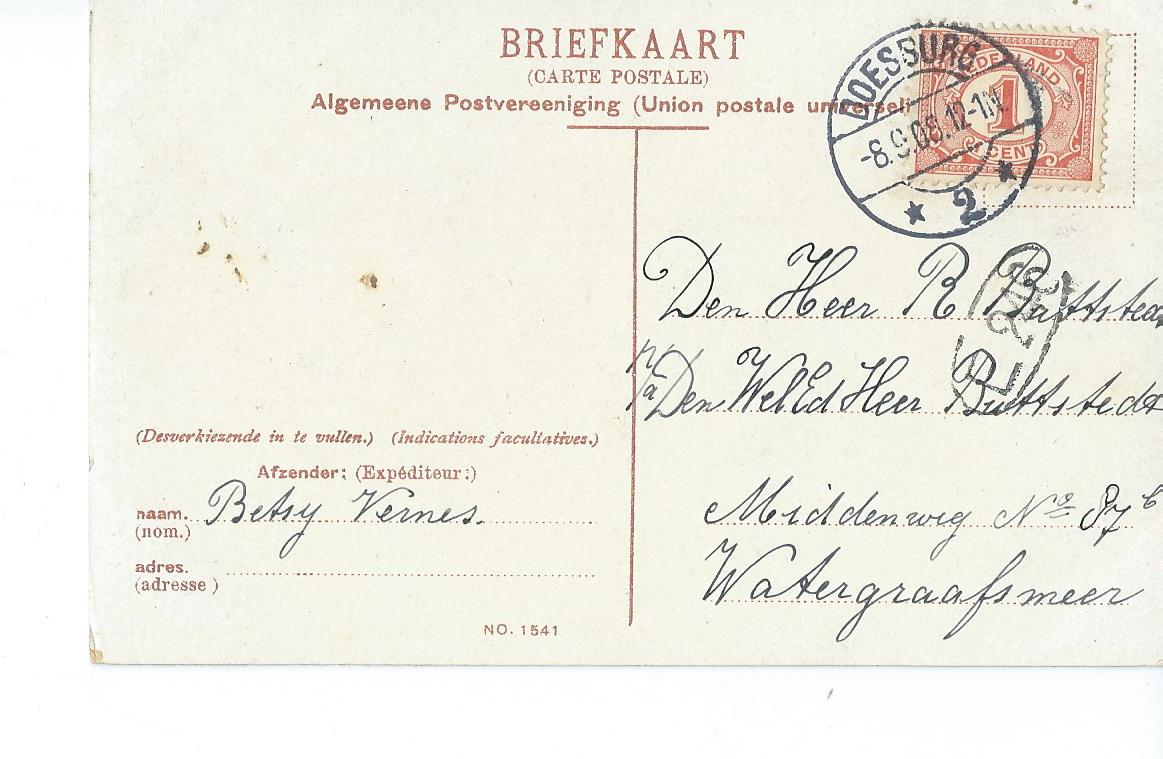 BRIEFKAART
(CARTE POSTALE)
Algemeene Postvereeniging (Union postale universel
DOESBURG
-8.9.08.12-1N
2
NEDERLAND
1
CENT
Den Heer R Buttsted
p/a Den WelEd Heer Buttstedt
Middenweg No 87
Watergraafsmeer
(Desverkiezende in te vullen.) (Indications facultatives.)
Afzender: (Expéditeur:)
naam. Betsy Vernes.
(nom.)
adres.
(adresse)
NO. 1541